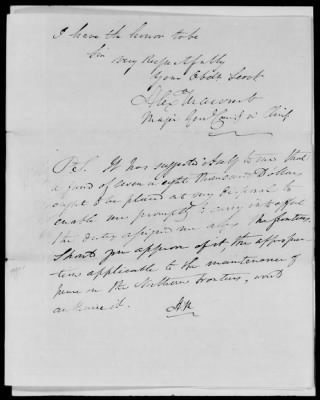 I have the honor to be
Sir Very Respectfully
Your Obdt Servt
Alexr Macomb
Major Genl Comg in Chief
P.S. It has suggested itself to me that
a fund of seven or eight thousand Dollars
ought to be placed at my disposal to
enable me promptly to carry into effect
the duties assigned me along the frontier.
Should you approve of it the appropria
tion applicable to the maintenance of
peace on the Northern frontier, would
authorise it.
AM